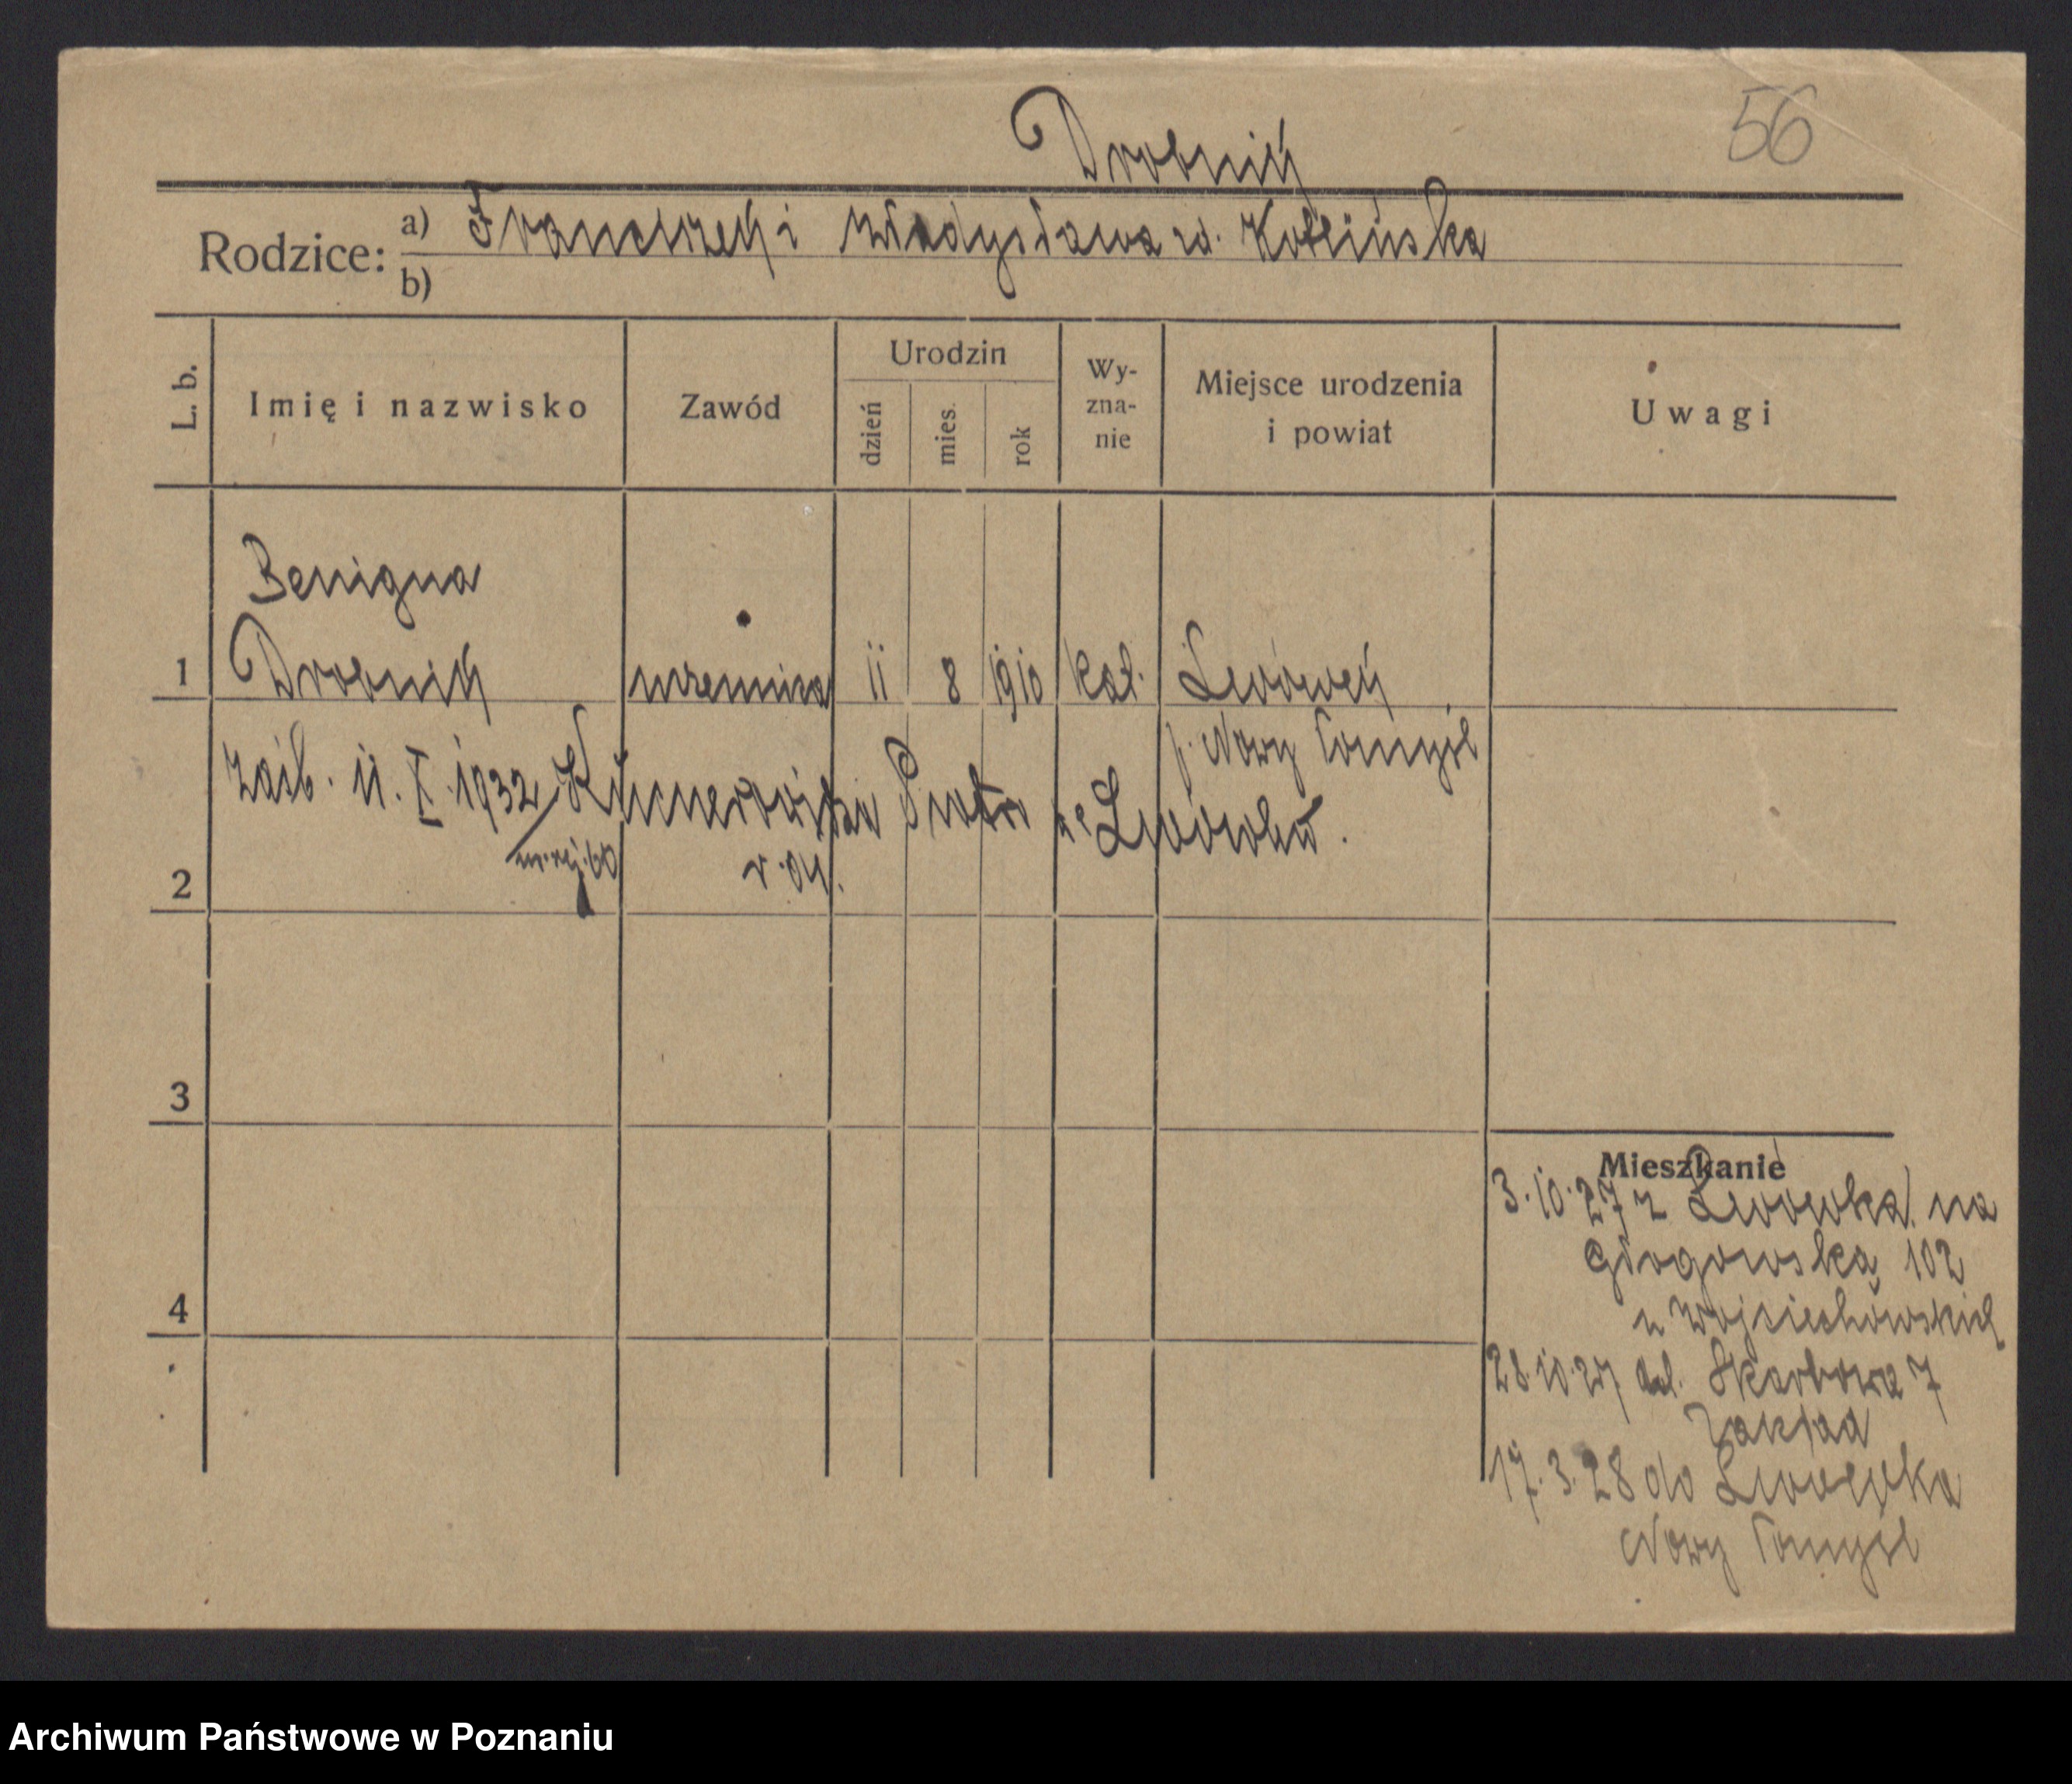 56
Drobnik
Rodzice: a) Franciszek i Władysława zd. Kotlińska
b)
L. b.
Imię i nazwisko
Zawód
Urodzin
dzień
mies.
rok
Wy-
zna-
nie
Miejsce urodzenia
i powiat
Uwagi
Benigna
1 Drobnik uczennica 11 8 1910 kat. Lwówek
p. Nowy Tomyśl
zaśb. 11. X. 1932 Piotr ze Lwówka.
nr. rej. 60
2
3
4
Mieszkanie
3.10.27 z Lwówka na
Głogowską 102
u Wojciechowskich
28.10.27 Skarbowa 7
Zakład
17.3.28 do Lwówka
Nowy Tomyśl
Archiwum Państwowe w Poznaniu